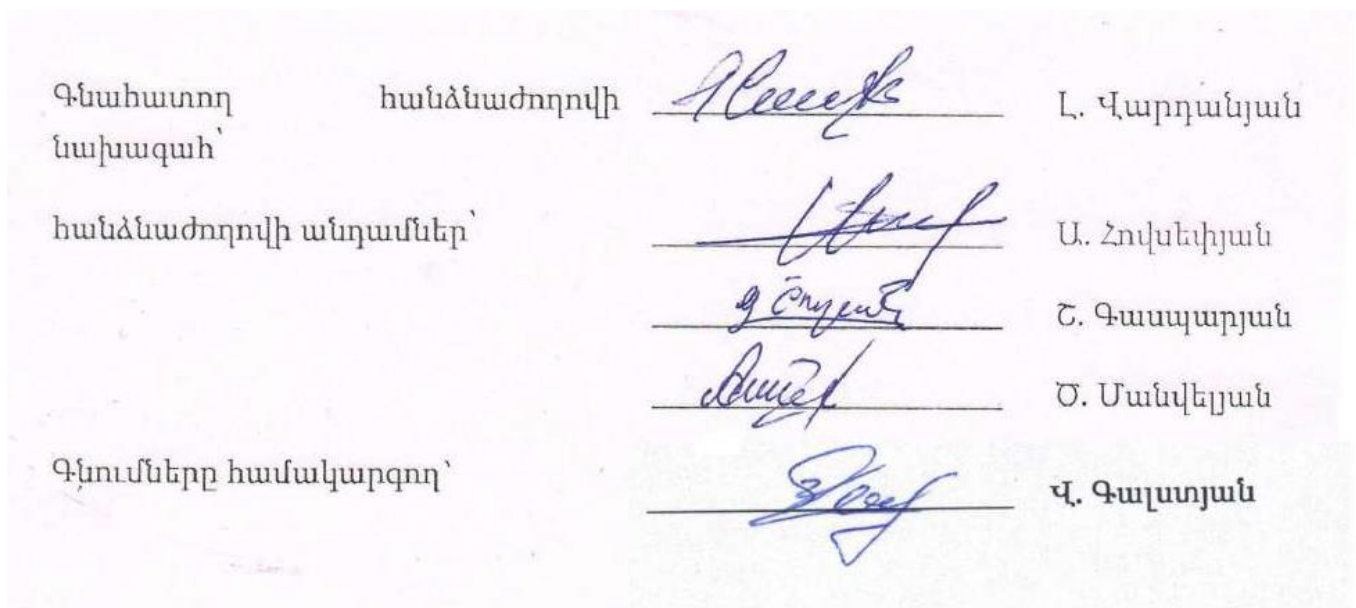 Գնահատող հանձնաժողովի Լ. Վարդանյան
նախագահ՝
հանձնաժողովի անդամներ՝ Ա. Հովսեփյան
Շ. Գասպարյան
Ծ. Մանվելյան
Գնումները համակարգող՝ Վ. Գալստյան